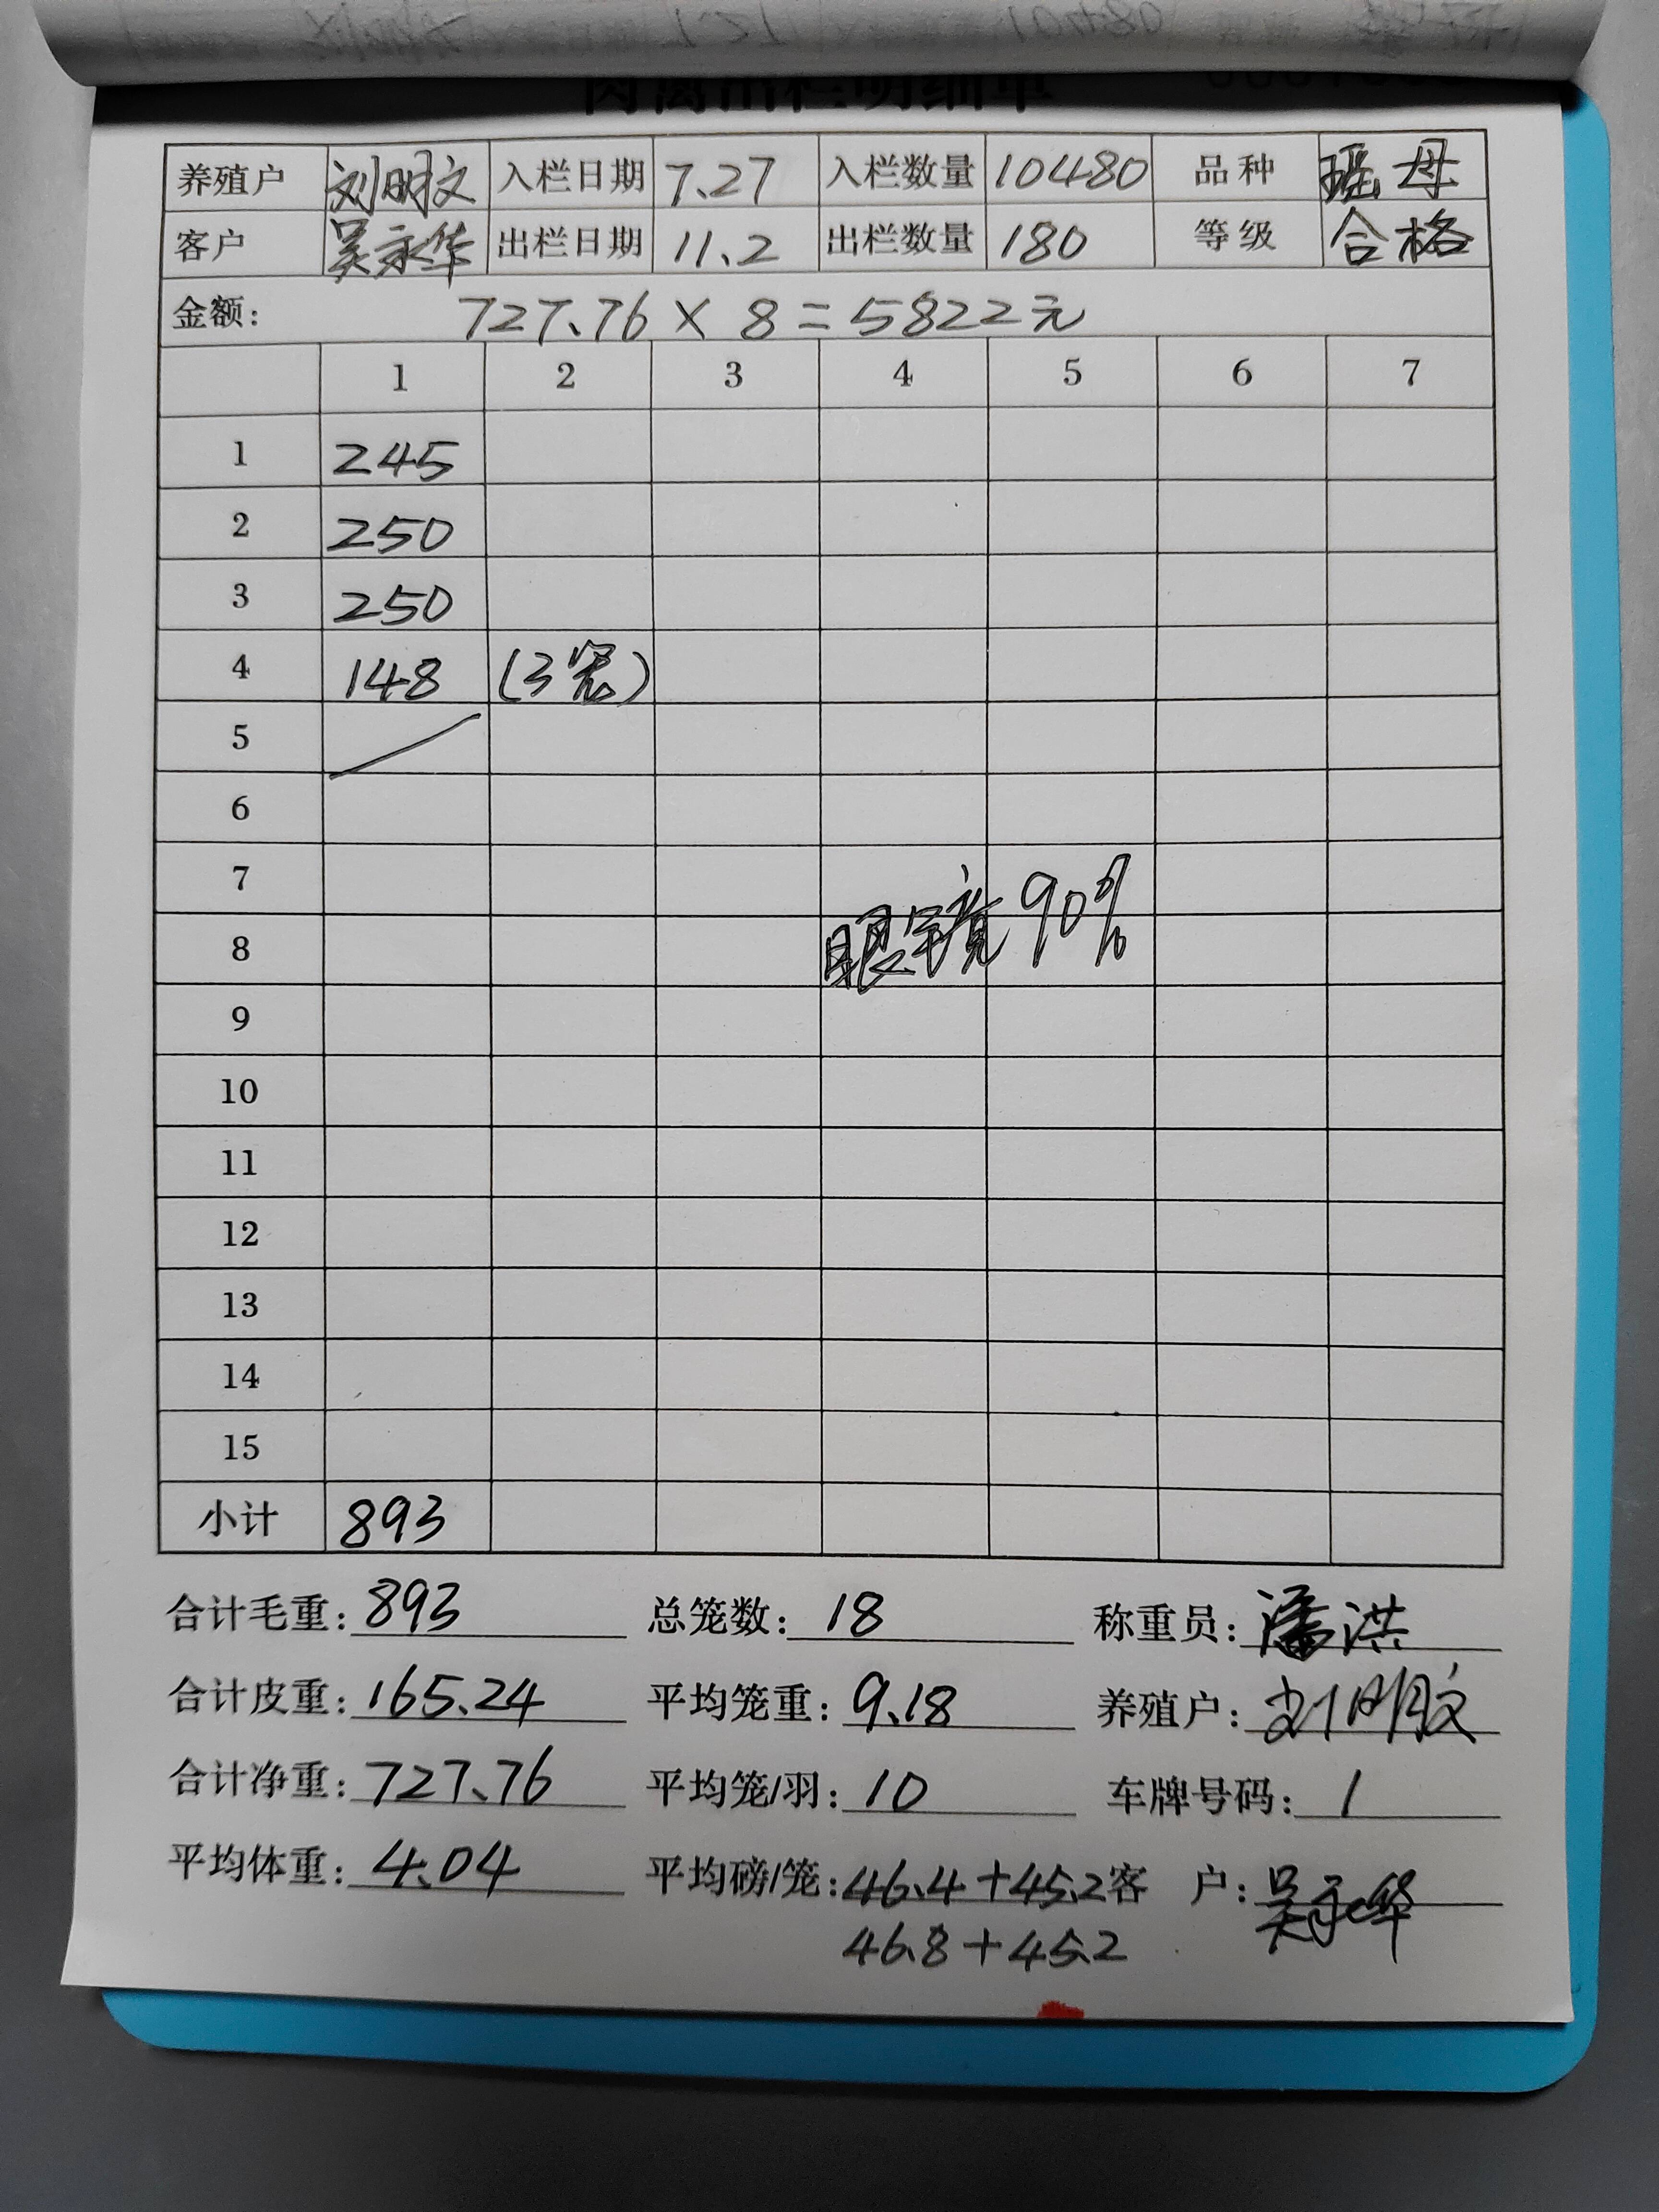 肉禽出栏明细单
养殖户 刘明文 入栏日期 7.27 入栏数量 10480 品种 瑶母
客户 吴永华 出栏日期 11.2 出栏数量 180 等级 合格
金额: 727.76 × 8 = 5822元
1 2 3 4 5 6 7
1 245
2 250
3 250
4 148 (3笼)
5
6
7
8 眼镜90%
9
10
11
12
13
14
15
小计 893
合计毛重: 893 总笼数: 18 称重员: 潘洪
合计皮重: 165.24 平均笼重: 9.18 养殖户: 刘明文
合计净重: 727.76 平均笼/羽: 10 车牌号码: 1
平均体重: 4.04 平均磅/笼: 46.4+45.2 客户: 吴永华
46.8+45.2